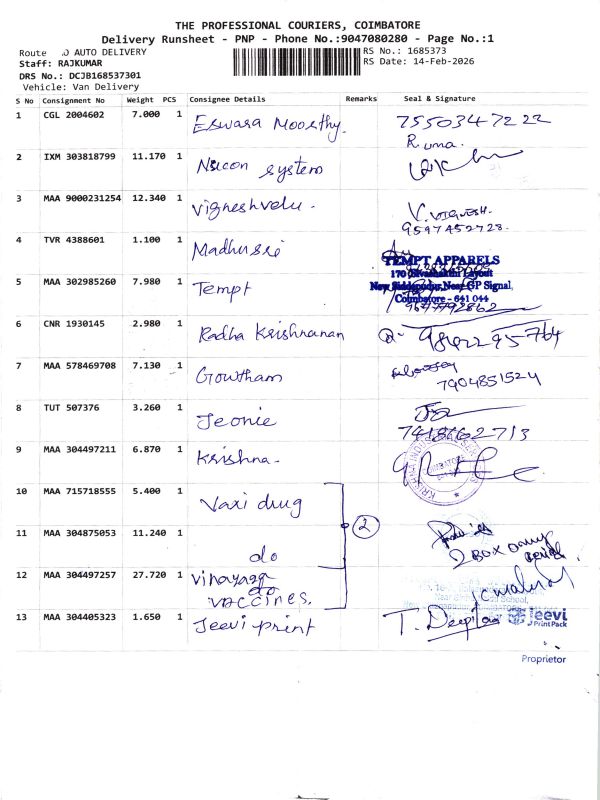 THE PROFESSIONAL COURIERS, COIMBATORE
Delivery Runsheet - PNP - Phone No.:9047080280 - Page No.:1
Route O AUTO DELIVERY
RS No.: 1685373
Staff: RAJKUMAR
RS Date: 14-Feb-2026
DRS No.: DCJB168537301
Vehicle: Van Delivery
S No Consignment No Weight PCS Consignee Details Remarks Seal & Signature
1 CGL 2004602 7.000 1 Eswara Moorthy. 7550347222
R.uma.
2 IXM 303818799 11.170 1 Nscon system
3 MAA 9000231254 12.340 1 Vigneshvelu. V.VIGNESH.
9597452728
4 TVR 4388601 1.100 1 Madhusri
TEMPT APPARELS
170 Sivashakthi Layout
5 MAA 302985260 7.980 1 Tempt New Siddapudur, Near GP Signal,
Coimbatore - 641 044
6 CNR 1930145 2.980 1 Radha Krishnanan 9842295764
7 MAA 578469708 7.130 1 Gowtham
7904851524
8 TUT 507376 3.260 1 Jeonie
7418662713
9 MAA 304497211 6.870 1 Krishna.
KRISHNA
10 MAA 715718555 5.400 1 Vaxi drug
2
11 MAA 304875053 11.240 1 do 2 BOX only
12 MAA 304497257 27.720 1 Vinayaga
do
vaccines.
13 MAA 304405323 1.650 1 Jeevi print T. Deepi
Jeevi
Print Pack
Proprietor